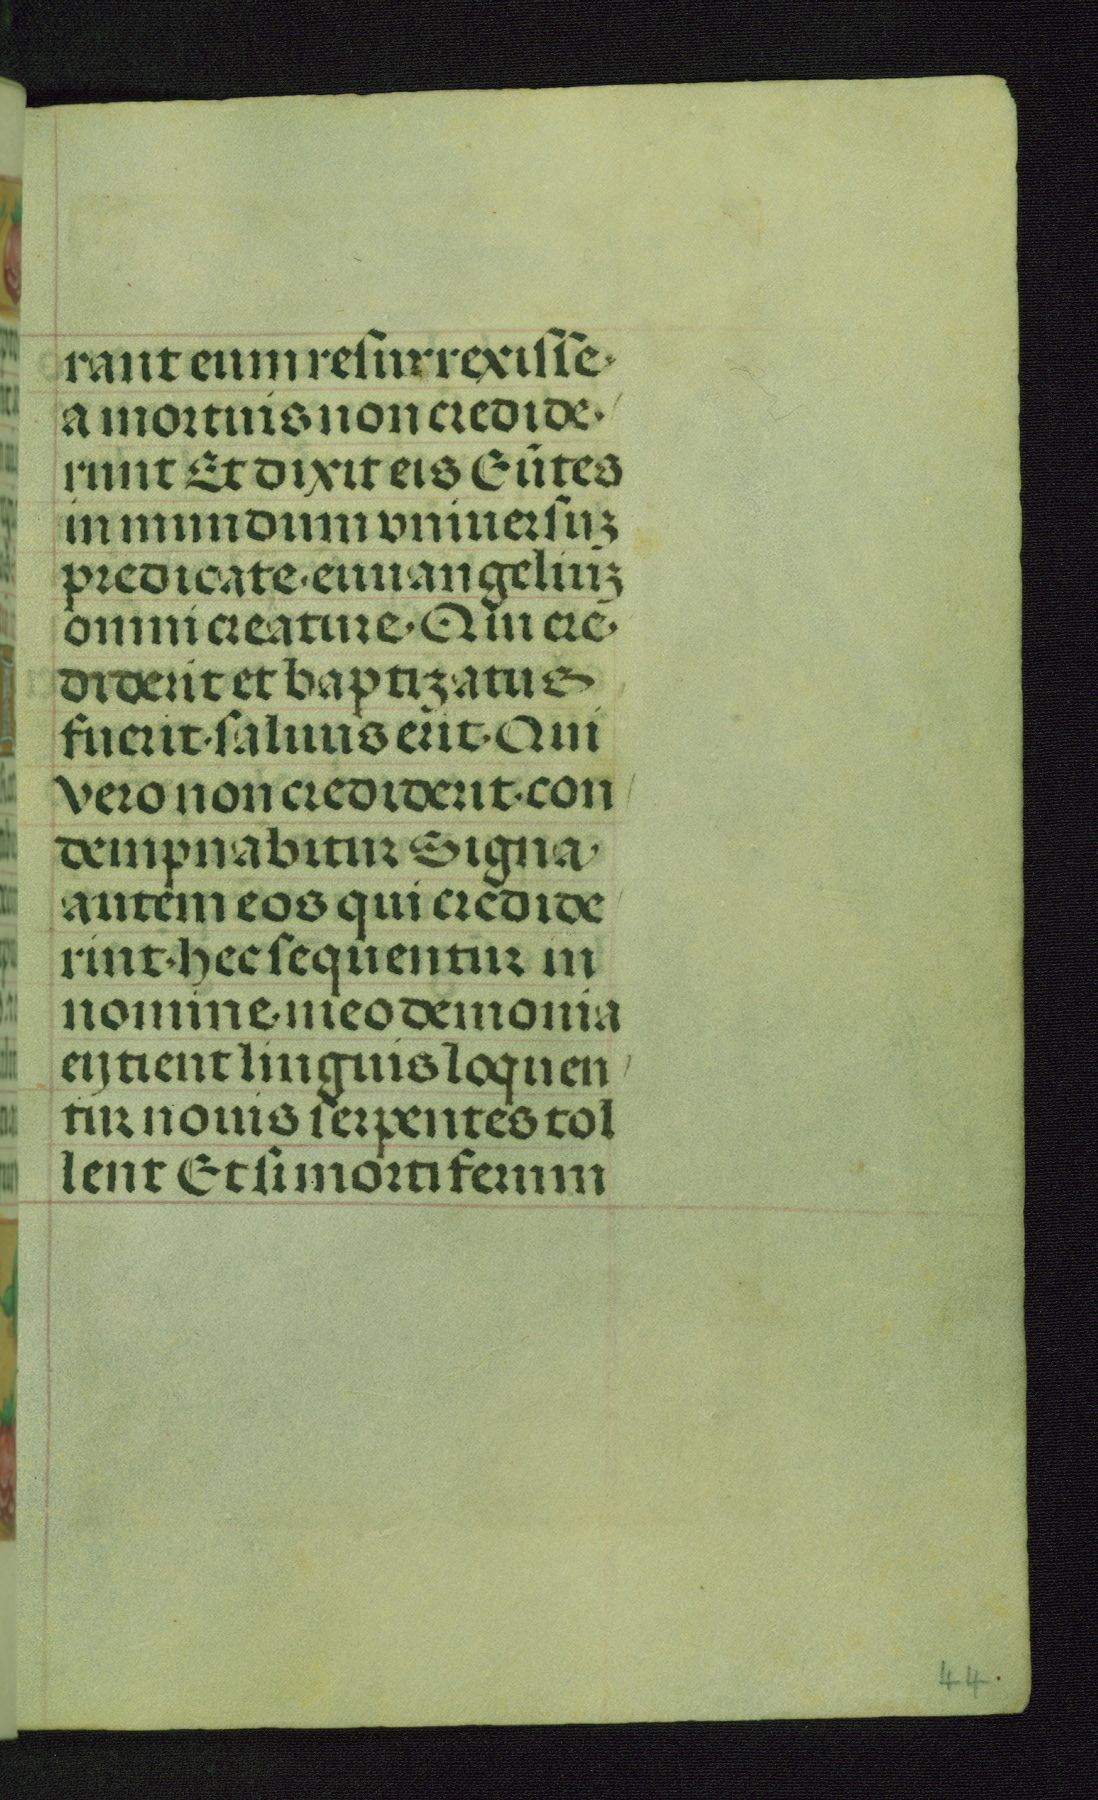 rant eum resurrexisse·
a mortuis non credide·/
runt Et dixit eis Eūtes
in mundum vniuersuꝫ
predicate·euuangeliuꝫ
omni creature·Qui cre·
diderit et baptizatus
fuerit·saluus erit·Qui
vero non crediderit·con/
dempnabitur Signa·
autem eos qui credide/
rint·hec sequentur in
nomine·meo demonia
eijcient linguis loquen/
tur nouis serpentes tol
lent Et si mortiferum
44.